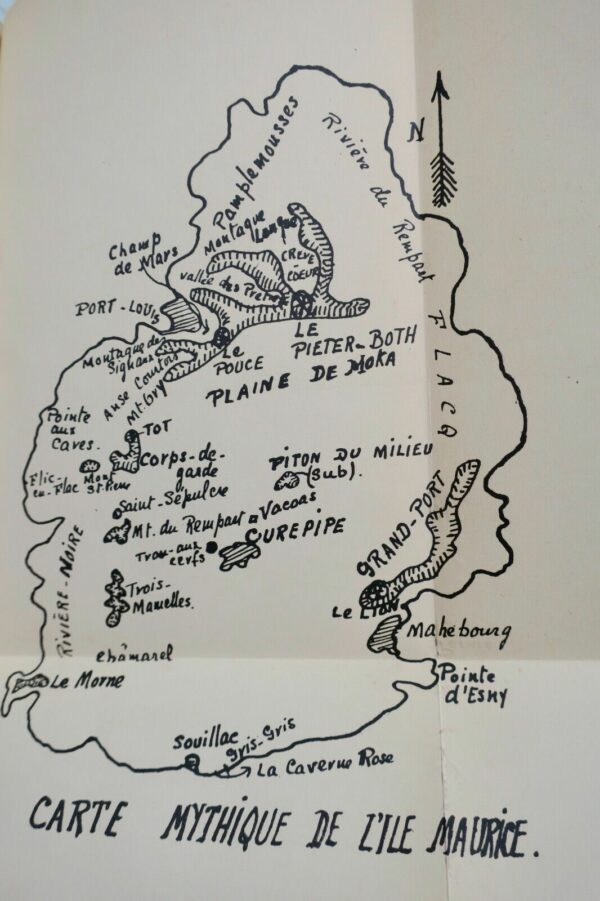 N
Pamplemousses
Rivière du Rempart
Montagne Longue
CREVE
COEUR
Champ
de Mars
Vallée des Pretres
PORT-LOUIS
LE
PIETER-BOTH
Le
POUCE
Montagne des
Signaux
Anse Courtois
Mt. Ory
PLAINE DE MOKA
FLACQ
Pointe
aux
Caves.
TOT
Corps-de-
garde
PITON DU MILIEU
(Sub).
Flic-
en-Flac
Mont
St. Pierre
Saint-Sépulcre
Mt. du Rempart
Vacoas
Trou-aux
cerfs
CUREPIPE
GRAND-PORT
RIVIÈRE-NOIRE
Trois-
Mamelles.
Le Lion
Mahébourg
Châmarel
Le Morne
Pointe
d'Esny
Souillac
Gris-Gris
La Caverne Rose
CARTE MYTHIQUE DE L'ILE MAURICE.